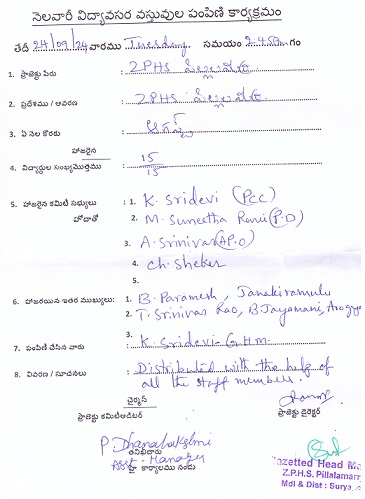 నెలవారీ విద్యావసర వస్తువుల పంపిణి కార్యక్రమం
తేదీ 24/09/24 వారము Tuesday. సమయం 2-45pm గం
1. ప్రాజెక్టు పేరు : ZPHS పిల్లలమర్రి
2. ప్రదేశము / ఆవరణ : ZPHS పిల్లలమర్రి
3. ఏ నెల కొరకు : ఆగస్ట్
హాజరైన 15
4. విద్యార్థుల సంఖ్య మొత్తము : 15
5. హాజరైన కమిటి సభ్యులు : 1. K. Sridevi (PCC)
హోదాతో 2. M. Suneetha Rani (P.D)
3. A. Srinivas (A.P.O)
4. Ch. Sheker
5.
6. హాజరయిన ఇతర ముఖ్యులు: 1. B. Paramesh, Janakiramulu
2. T. Srinivas Rao, B Jayamani, Arogya
3.
7. పంపిణి చేసిన వారు : K. Sridevi - G.H.M.
8. వివరణ / సూచనలు : Distributed with the help of
all the staff members.
చైర్మన్
ప్రాజెక్టు కమిటి ఆడిటర్ ప్రాజెక్టు డైరెక్టర్
P. Dhanalakshmi
తనిఖీదారు
Asst. Manager
హై కార్యాలము నందు
azetted Head Ma
Z.P.H.S. Pillalamarr
Mdl & Dist : Surya